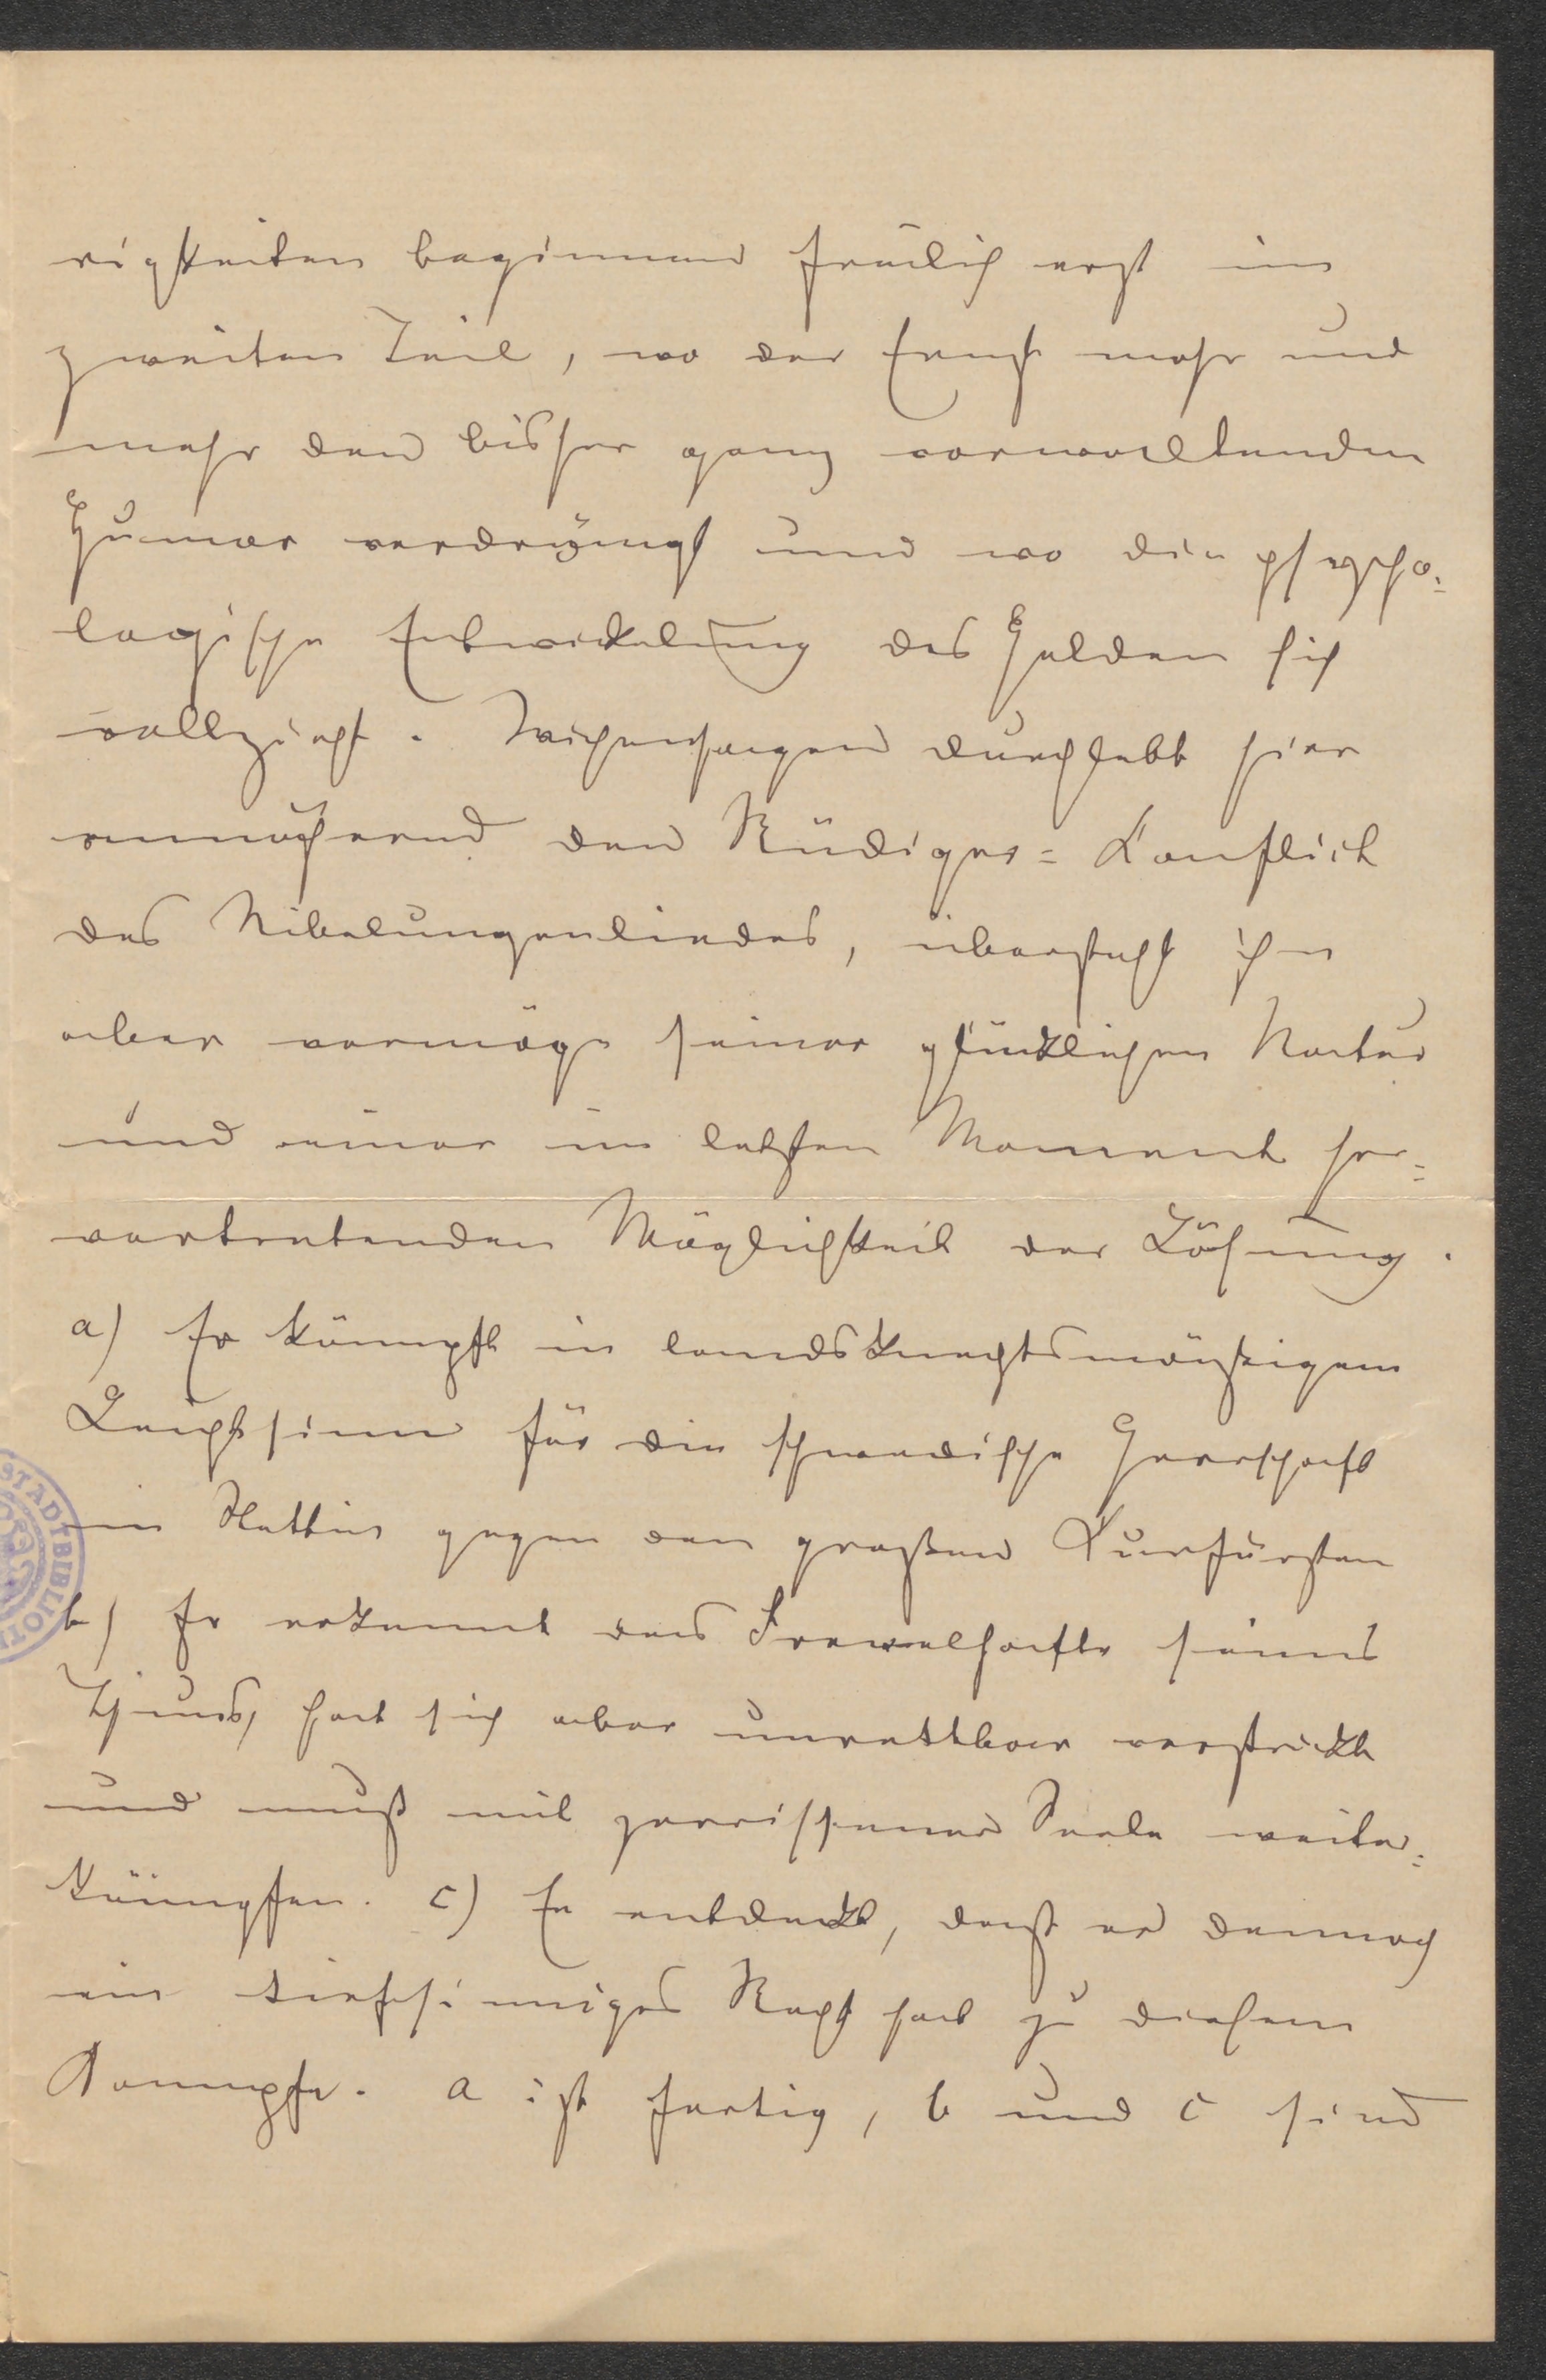 rigkeiten beginnen freilich erst im
zweiten Teil, wo der Ernst mehr und
mehr den bisher ganz vorwaltenden
Humor verdrängt und wo die psycho=
logische Entwickelung des Helden sich
vollzieht. durchlebt hier
annähernd den Rüdiger=Konflict
des Nibelungenliedes, übersteht ihn
aber vermöge seiner glücklichen Natur
und einer im letzten Moment her=
vortretenden Möglichkeit der Lösung.
a) Er kämpft in landsknechtsmäßigem
Leichtsinn für die schwedische Herrschaft
in Stettin gegen den großen Kurfürsten
b) Er erkennt das Frevelhafte seines
Thuns, hat sich aber unrettbar verstrickt
und muß mit zerrissener Seele weiter=
kämpfen. c) Er entdeckt, daß er dennoch
ein tiefsinniges Recht hat zu diesem
Kampfe. a ist fertig, b und c sind
STADTBIBLIOTH